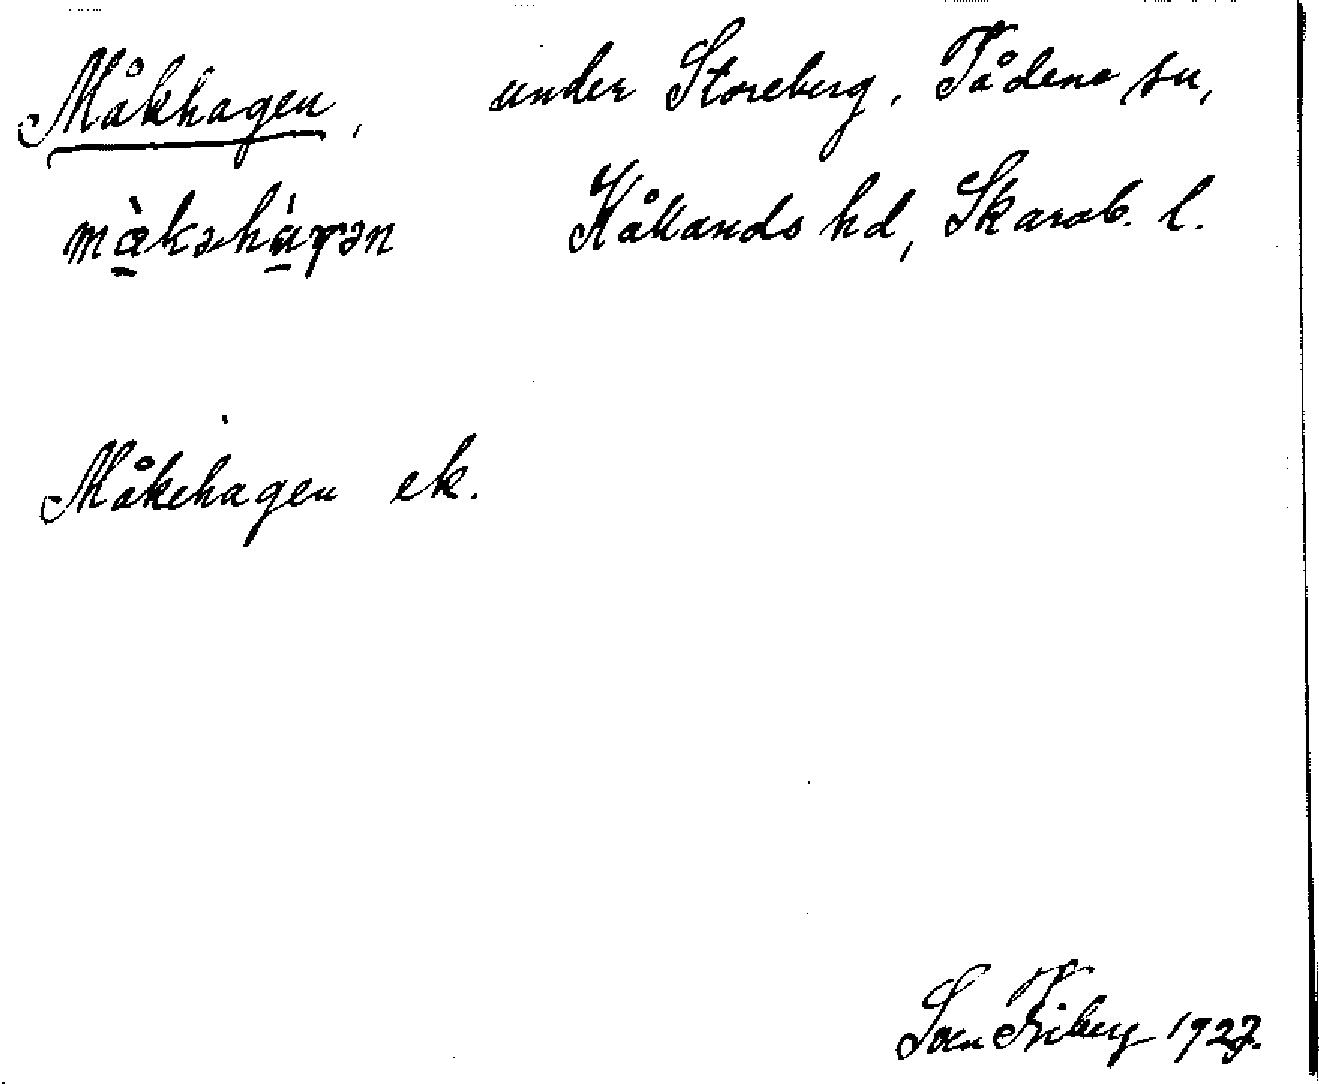 Måkhagen, under Storeberg, Tådene sn,
màkəhàɤən Kållands hd, Skarab. l.
Måkehagen ek.
Sven Friberg 1927.